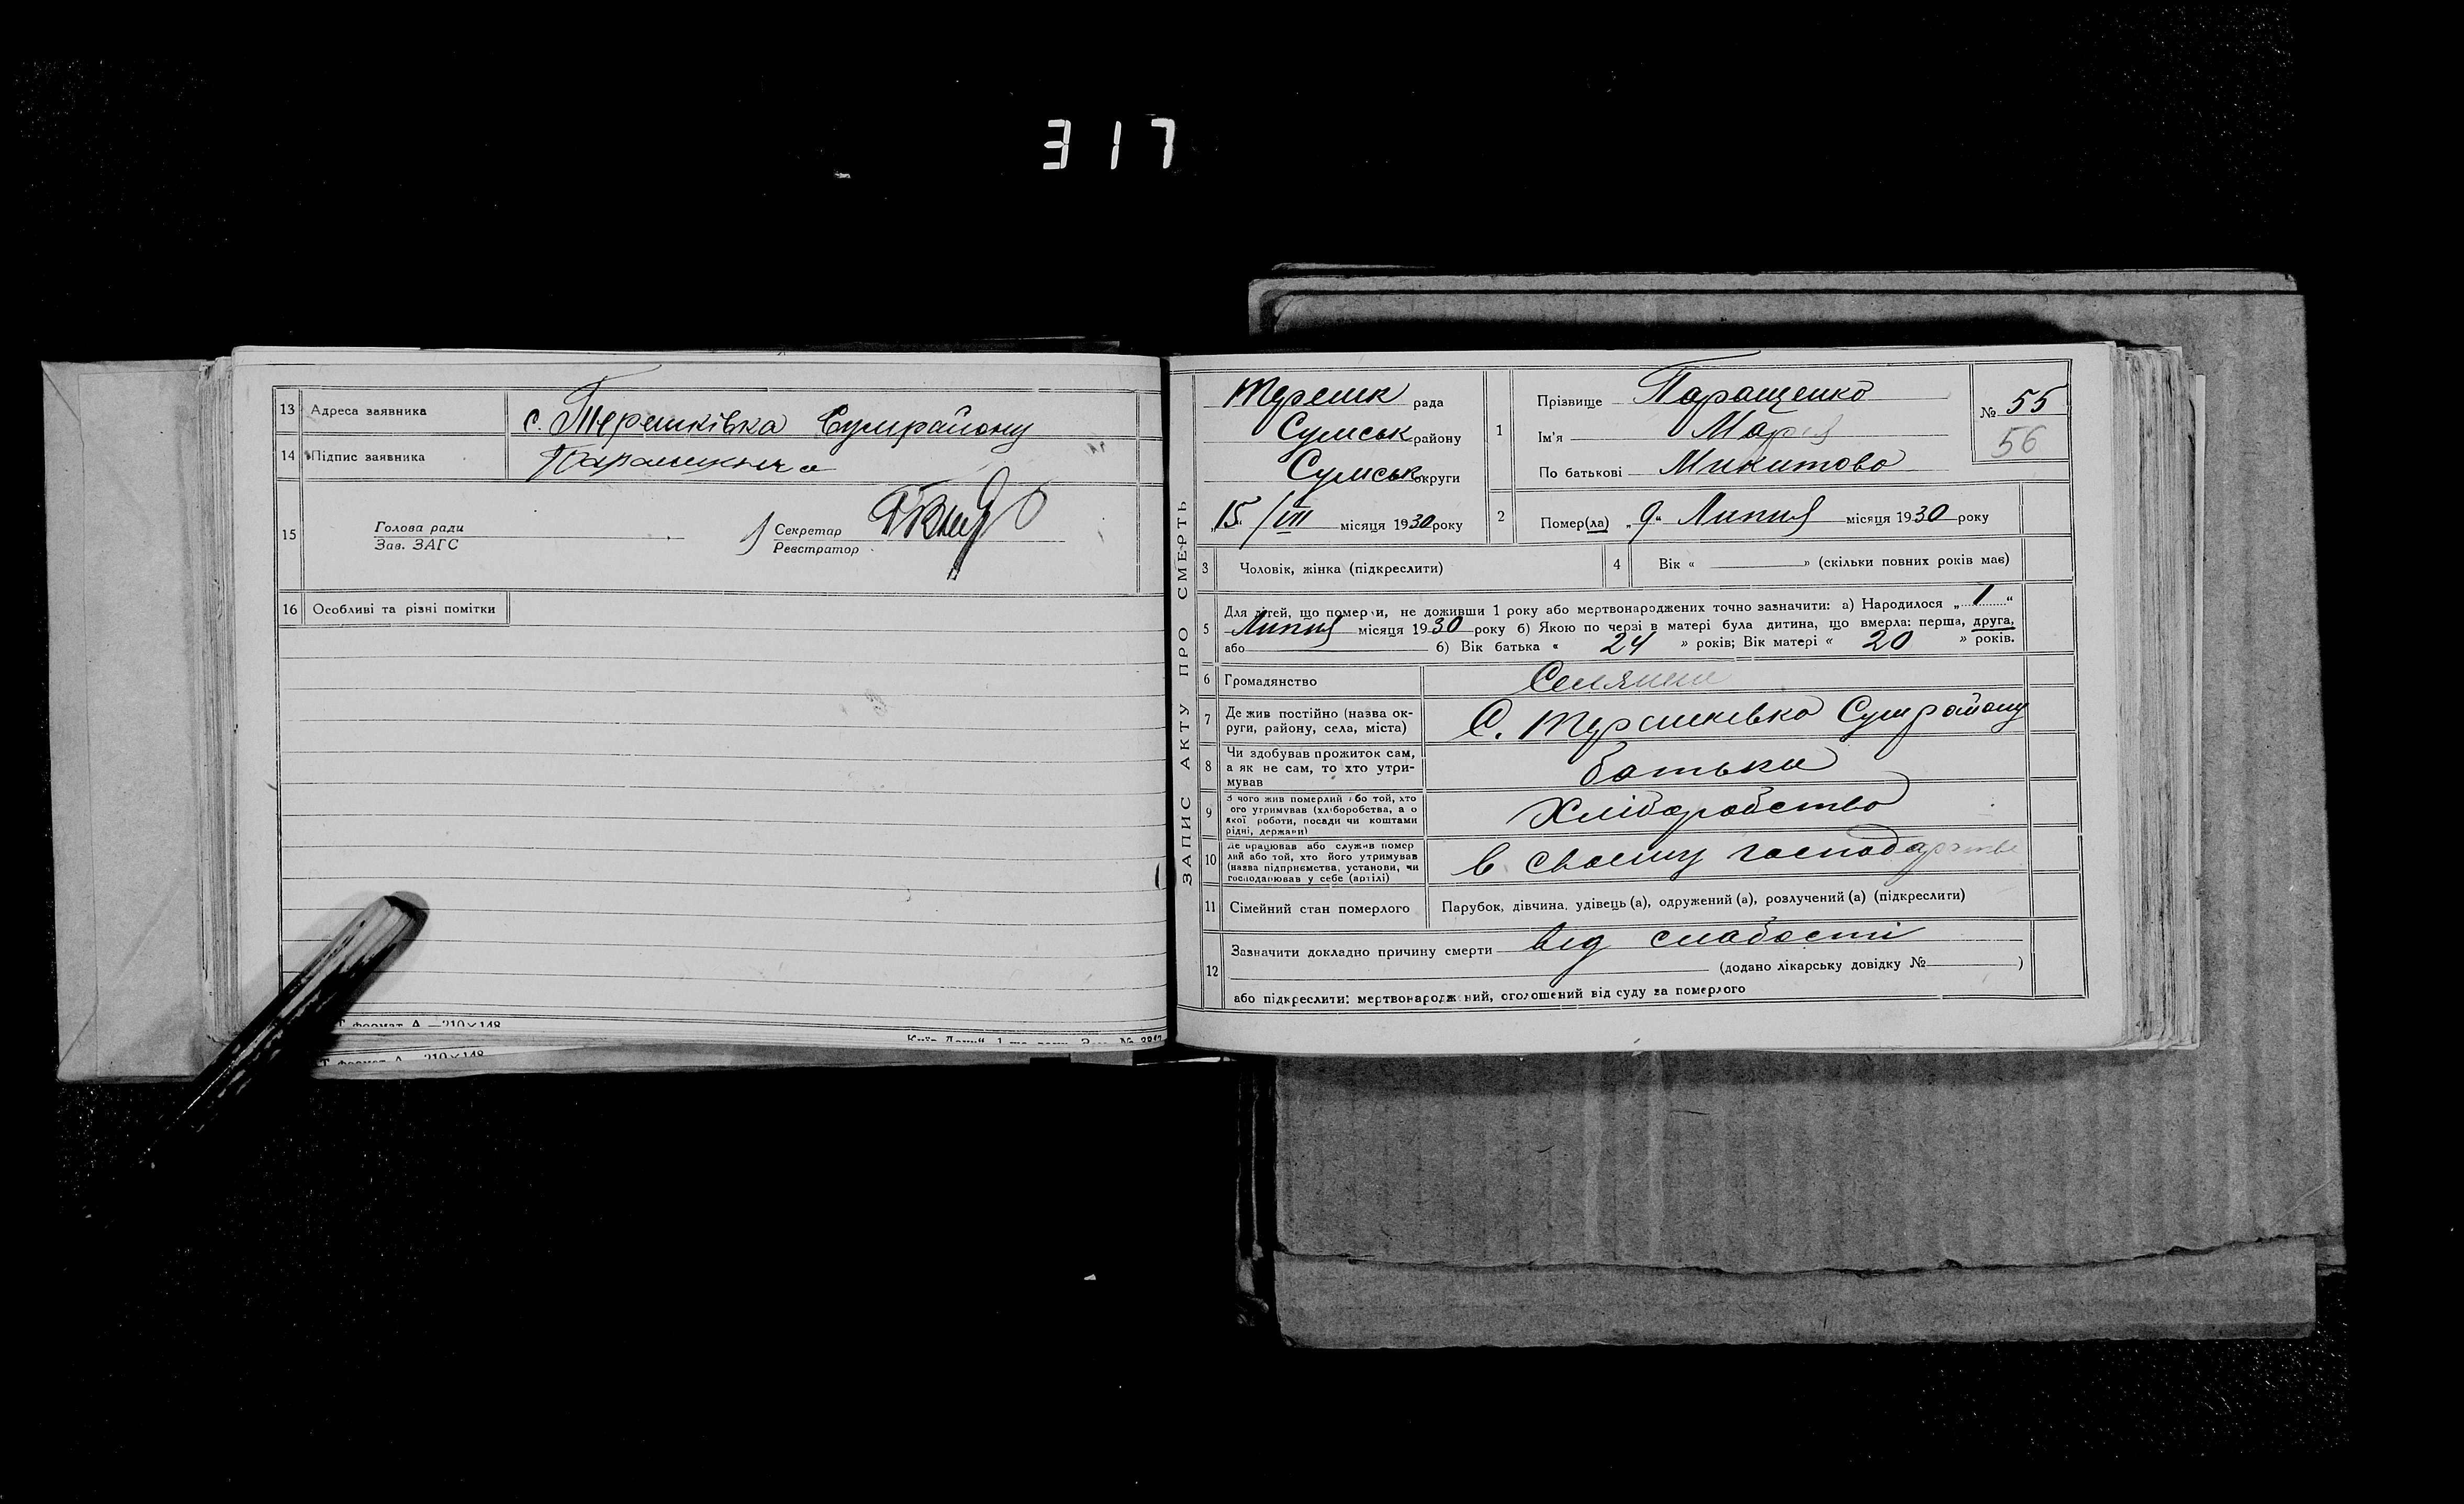 317
13 Адреса заявника с. Терешківка Сумрайону
14 Підпис заявника
15 Голова ради
Зав. ЗАГС
Секретар
Реєстратор
16 Особливі та різні помітки
Т формат А —210×148
Т формат А — 210×148
ЗАПИС АКТУ ПРО СМЕРТЬ
Терешк рада
Сумськ району
Сумськ округи
„15“ /VII місяця 1930 року
1 Прізвище Паращенко
Ім'я Марія
По батькові Микитова
№ 55
56
2 Помер(ла) „9“ Липня місяця 1930 року
3 Чоловік, жінка (підкреслити)
4 Вік « » (скільки повних років має)
5 Для дітей, що померли, не доживши 1 року або мертвонароджених точно зазначити: а) Народилося „1“
Липня місяця 1930 року б) Якою по черзі в матері була дитина, що вмерла: перша, друга,
або б) Вік батька « 24 » років; Вік матері « 20 » років.
6 Громадянство Селяни
7 Де жив постійно (назва ок-
руги, району, села, міста) С. Терешківка Сумрайону
8 Чи здобував прожиток сам,
а як не сам, то хто утри-
мував батьки
9 З чого жив померлий або той, хто
його утримував (хліборобства, а о
якої роботи, посади чи коштами
рідні, держави) Хліборобство
10 Де працював або служив помер
лий або той, хто його утримував
(назва підприємства, установи, чи
господарював у себе (артілі) в своєму господарстві
11 Сімейний стан померлого Парубок, дівчина, удівець (а), одружений (а), розлучений (а) (підкреслити)
12 Зазначити докладно причину смерти від слабості
(додано лікарську довідку № )
або підкреслити: мертвонароджений, оголошений від суду за померлого